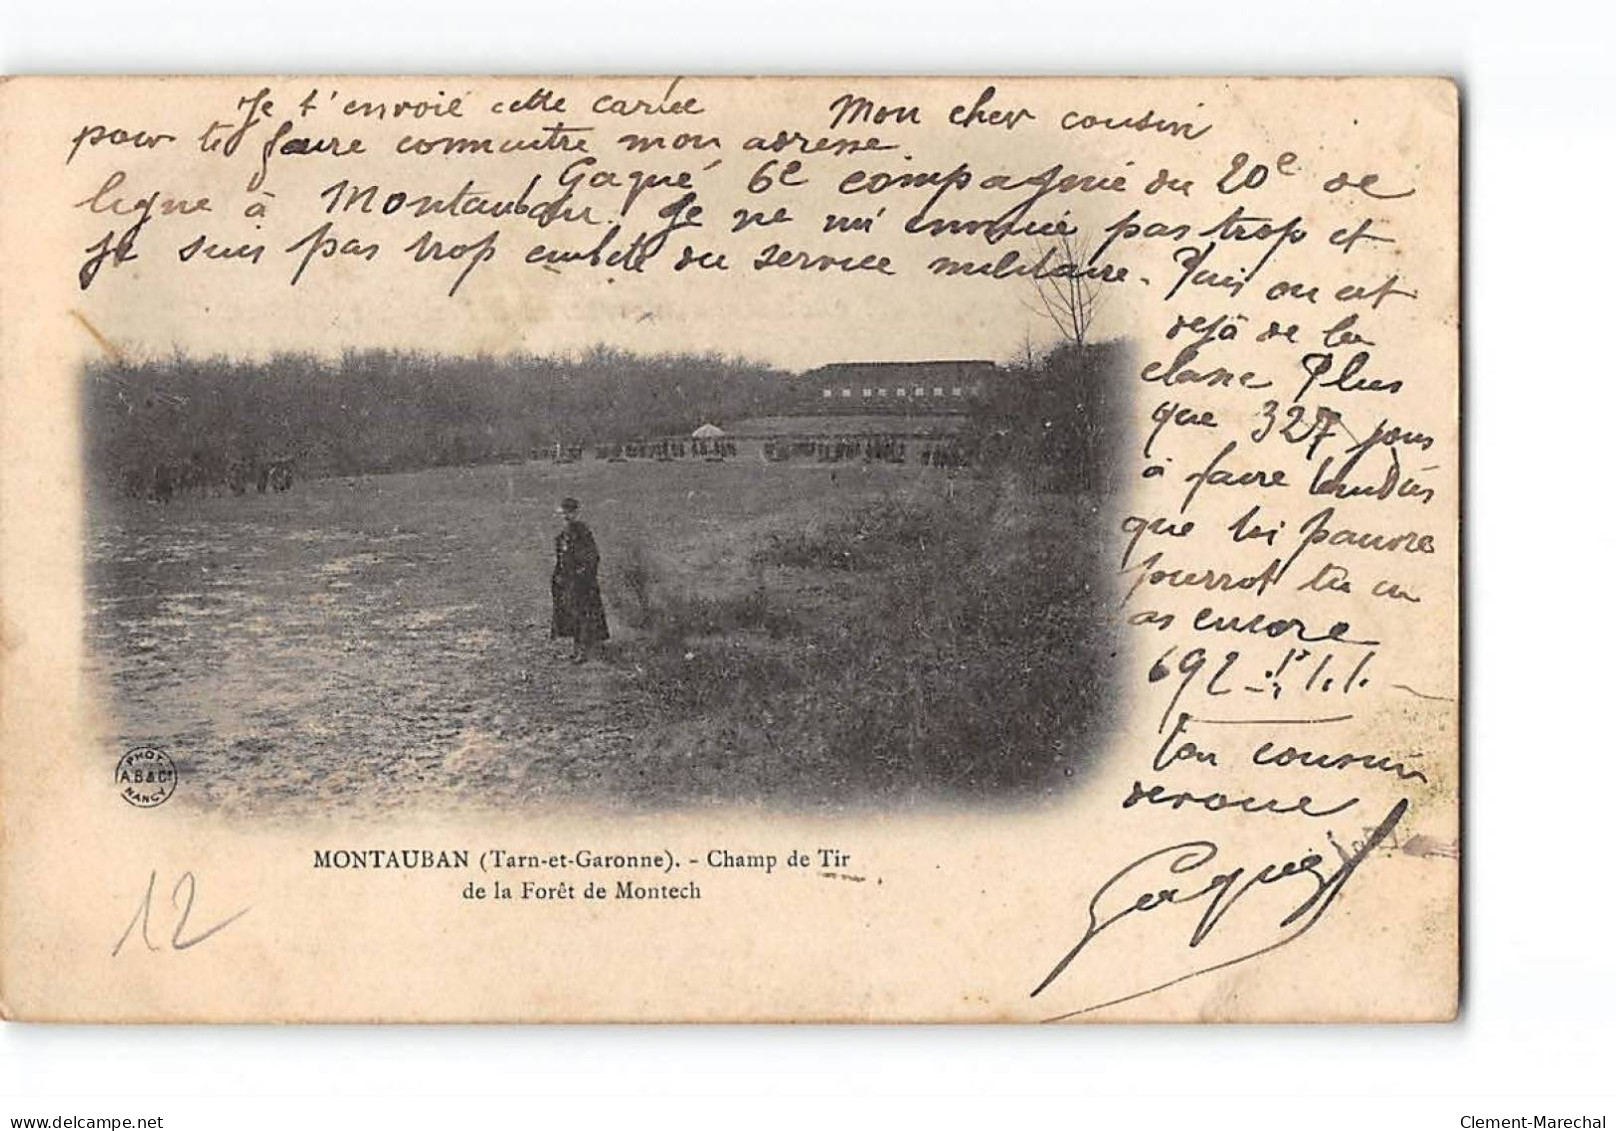 Mon cher cousin
Je t'envoie cette cariee
pour te faire connaitre mon adresse
Gaqué 6e compagnie du 20e de
ligne à Montauban. Je ne m'ennuie pas trop et
je suis pas trop embété du service militaire. Puis on est
dejà de la
classe Plus
que 327 jours
à faire tandis
que toi pauvre
pourrot tu en
as encore
692
ton cousin
devoue
Gaqué
PHOT.
A.B & Cie
NANCY
MONTAUBAN (Tarn-et-Garonne). - Champ de Tir
de la Forêt de Montech
12
delcampe.net
Clement-Marechal